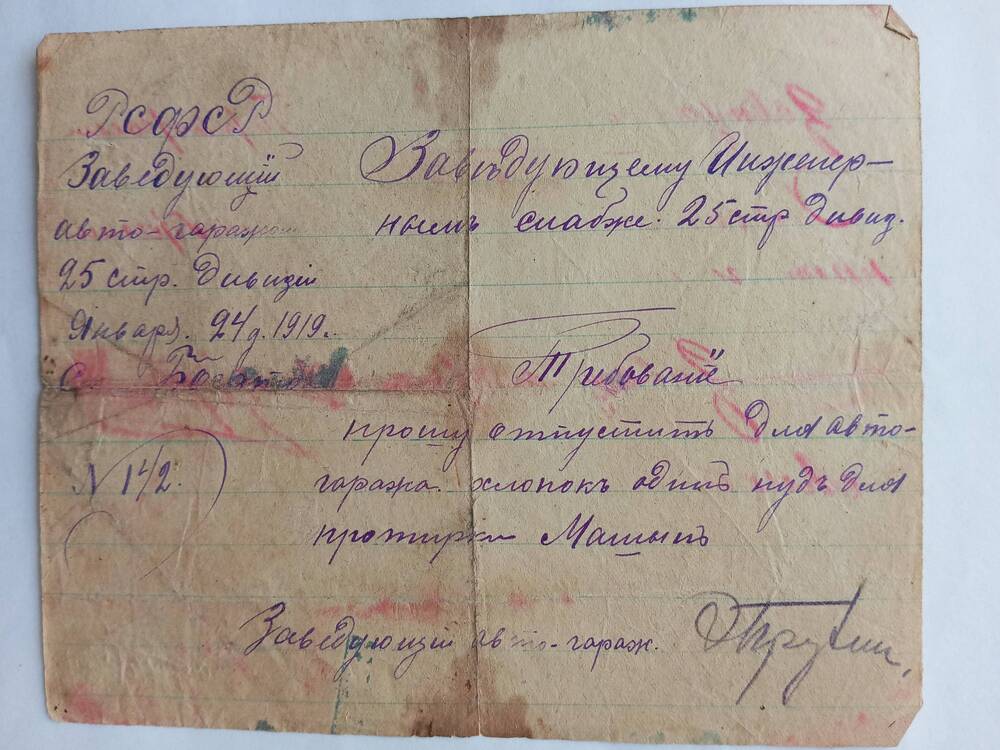 РСФСР
Заведующій
авто-гаражом
25 стр. Дивизіи
Января. 24 д. 1919 г.
С.
№ 142.
Завѣдующему Инженер-
нымъ снабже. 25 стр Дивид.
Требованіе
прошу отпустить для авто-
гаража. хлопокъ одинъ пудъ для
протирки Машынъ
Заведующій авто-гараж.